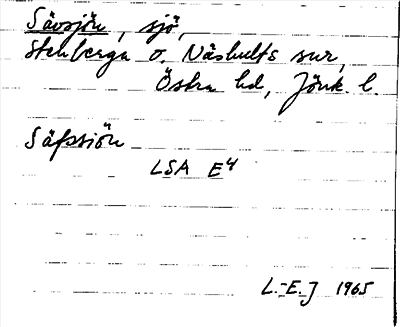 Sävsjön, sjö,
Stenberga o. Näshults snr,
Östra hd, Jönk. l.
Säfssiön
LSA E4
L.-E.J 1965